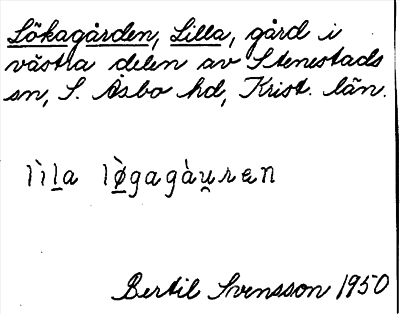 Lökagården, Lilla, gård i
västra delen av Stenestads
sn, S. Åsbo hd, Krist. län.
lìl̲a lø̲̀gagàu̲̯ræn
Bertil Svensson 1950